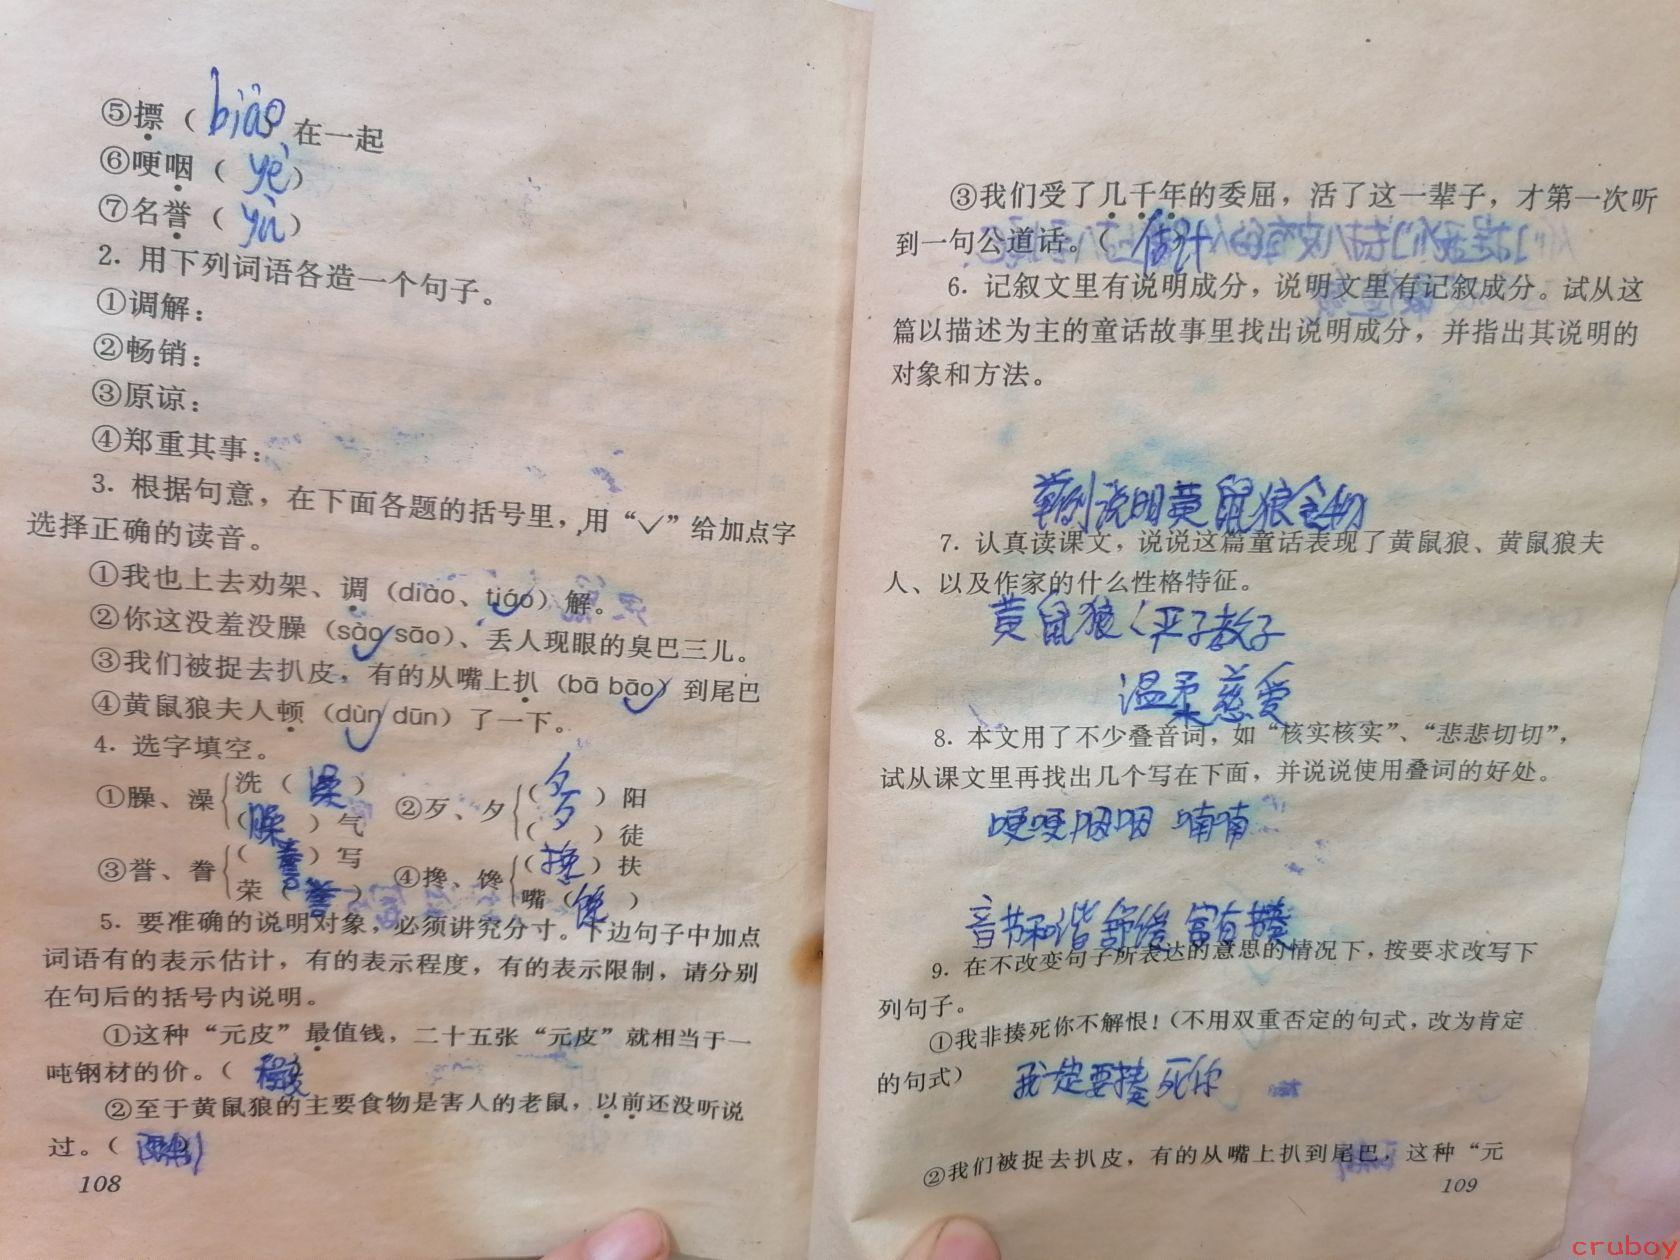 ⑤摽（biào 在一起
⑥哽咽（yè）
⑦名誉（yù）
2. 用下列词语各造一个句子。
①调解：
②畅销：
③原谅：
④郑重其事：
3. 根据句意，在下面各题的括号里，用“✓”给加点字
选择正确的读音。
①我也上去劝架、调（diào、tiáo）解。
②你这没羞没臊（sào sāo）、丢人现眼的臭巴三儿。
③我们被捉去扒皮，有的从嘴上扒（bā bāo）到尾巴
④黄鼠狼夫人顿（dùn dūn）了一下。
4. 选字填空。
①臊、澡 洗（澡）
（臊）气
②歹、夕（夕）阳
（歹）徒
③誉、誊（誊）写
荣（誉）
④搀、馋（搀）扶
嘴（馋）
5. 要准确的说明对象，必须讲究分寸。下边句子中加点
词语有的表示估计，有的表示程度，有的表示限制，请分别
在句后的括号内说明。
①这种“元皮”最值钱，二十五张“元皮”就相当于一
吨钢材的价。（程度
②至于黄鼠狼的主要食物是害人的老鼠，以前还没听说
过。（限制）
108
③我们受了几千年的委屈，活了这一辈子，才第一次听
到一句公道话。（估计
6. 记叙文里有说明成分，说明文里有记叙成分。试从这
篇以描述为主的童话故事里找出说明成分，并指出其说明的
对象和方法。
举例说明黄鼠狼食物
7. 认真读课文，说说这篇童话表现了黄鼠狼、黄鼠狼夫
人、以及作家的什么性格特征。
黄鼠狼 严于教子
温柔慈爱
8. 本文用了不少叠音词，如“核实核实”、“悲悲切切”，
试从课文里再找出几个写在下面，并说说使用叠词的好处。
哽哽咽咽 喃喃
音节和谐 舒缓 富有节奏
9. 在不改变句子所表达的意思的情况下，按要求改写下
列句子。
①我非揍死你不解恨！（不用双重否定的句式，改为肯定
的句式） 我一定要揍死你
②我们被捉去扒皮，有的从嘴上扒到尾巴，这种“元
109
cruboy